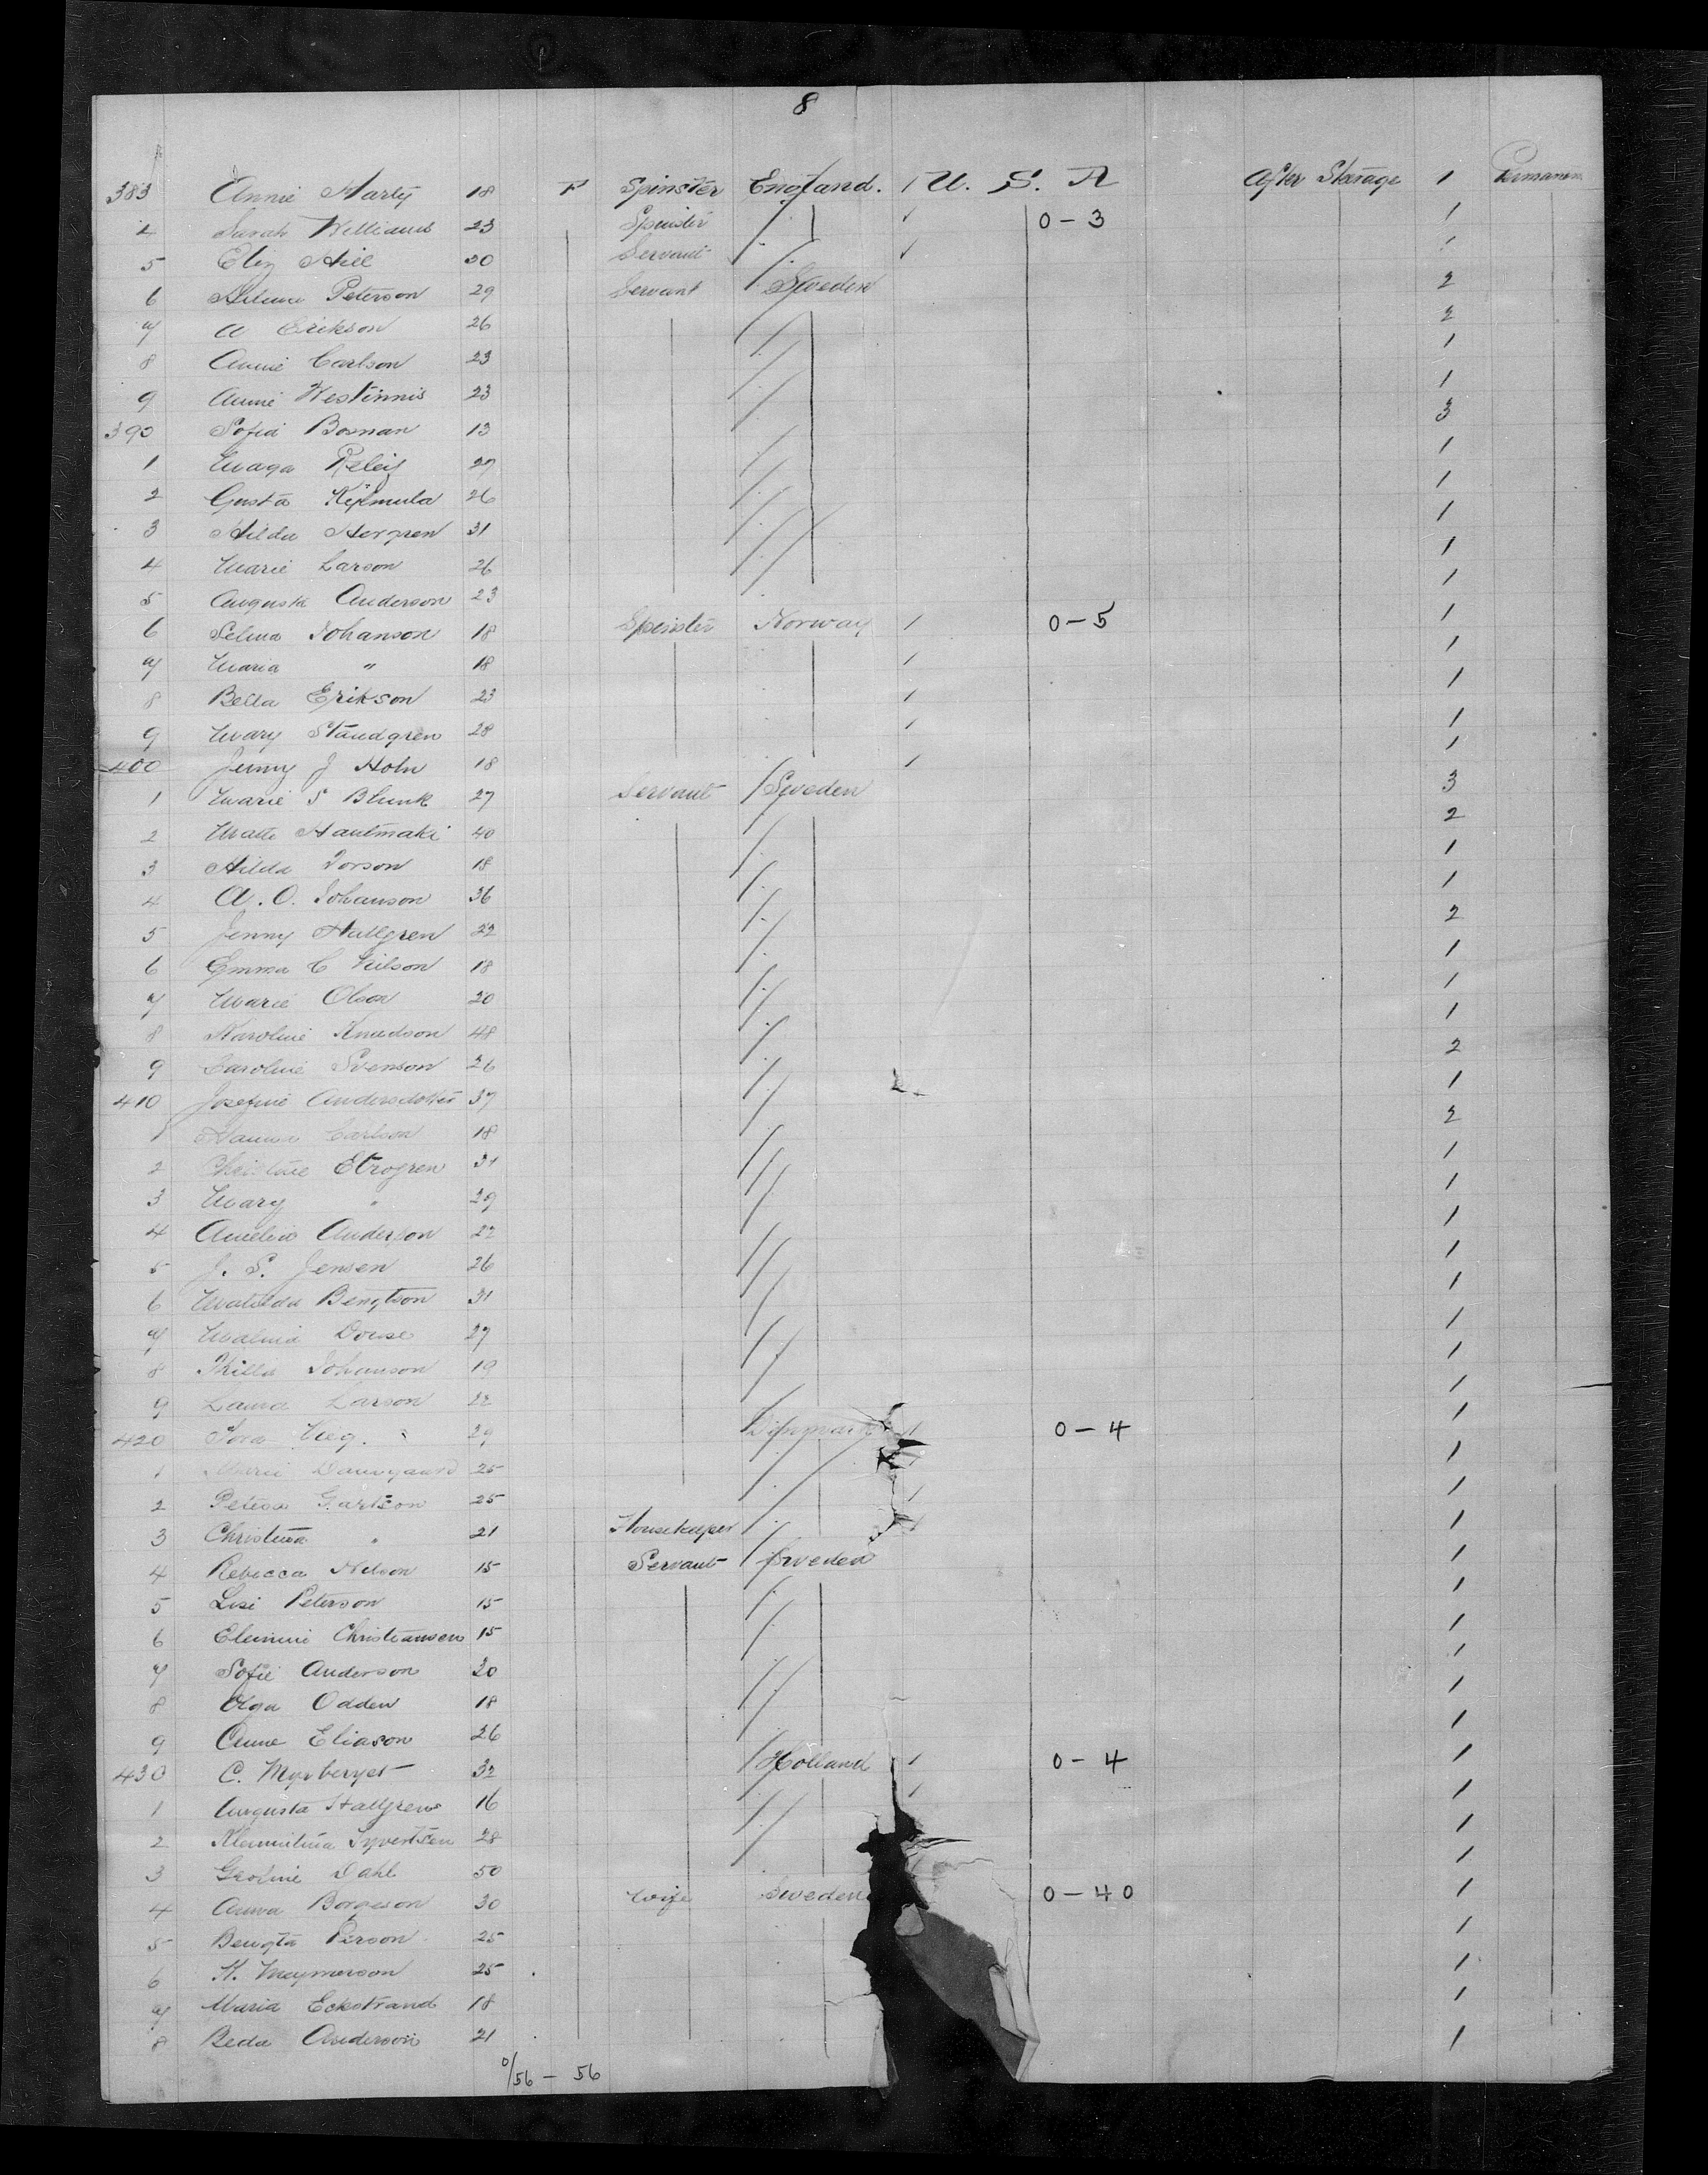 8
383 Annie Harty 18 F Spinster England. 1 U. S. A After Steerage 1 Permanent
4 Sarah Williams 23 Spinster ✓ 0-3 1
5 Eliz Hill 20 Servant ✓ 1
6 Peterson 29 Servant Sweden 2
7 A Erikson 26 2
8 Annie Carlson 23 1
9 Annie Westinnis 23 1
390 Sofia Bosman 13 3
1 27 1
2 Gusta 26 1
3 Hilda Horgren 31 1
4 Marie Larson 26 1
5 Augusta Anderson 23 1
6 Selma Johanson 18 Spinster Norway 1 0-5 1
7 Maria " 18 1 1
8 Bella Erikson 23 1 1
9 Mary Standgren 28 1 1
400 Jenny J Holm 18 1 1
1 Marie S Blunk 27 Servant Sweden 3
2 Hautmaki 40 2
3 Hilda Torson 18 1
4 A. O. Johanson 36 1
5 Jenny Hallgren 22 2
6 Emma C Nilson 18 1
7 Marie Olson 20 1
8 Karoline Knudson 48 1
9 Caroline Svenson 26 2
410 Josefine Andersdotter 37 1
1 Hanna Carlson 18 2
2 Christine Etrogren 31 1
3 Mary " 29 1
4 Amelia Anderson 22 1
5 J. S. Jensen 26 1
6 Matilda Bengtson 31 1
7 Malina 27 1
8 Johanson 19 1
9 Laura Larson 22 1
420 29 Denmark 1 0-4 1
1 Marie 25 1
2 Petrea Gartson 25 1 1
3 Christina " 21 Housekeeper 1 1
4 Rebecca Nelson 15 Servant Sweden 1
5 Lise Peterson 15 1
6 Christiansen 15 1
7 Sofie Anderson 20 1
8 Olga Odden 18 1
9 Anne Eliason 26 1
430 C. 32 Holland 1 0-4 1
1 Augusta Hallgren 16 1 1
2 Syvertsen 28 1
3 Dahl 50 1
4 Anna Borgeson 30 Wife Sweden 0-40 1
5 Bengta Person 25 1
6 K. 25 1
7 Maria Eckstrand 18 1
8 Beda Anderson 21 1
0/56 - 56